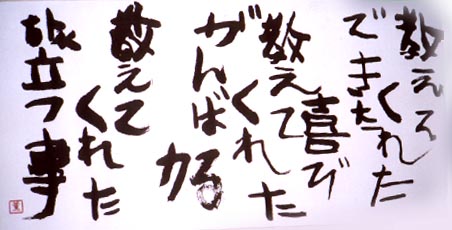 教えて
くれた
できた
喜び
教えて
くれた
がんばる
力
教えて
くれた
旅立つ事